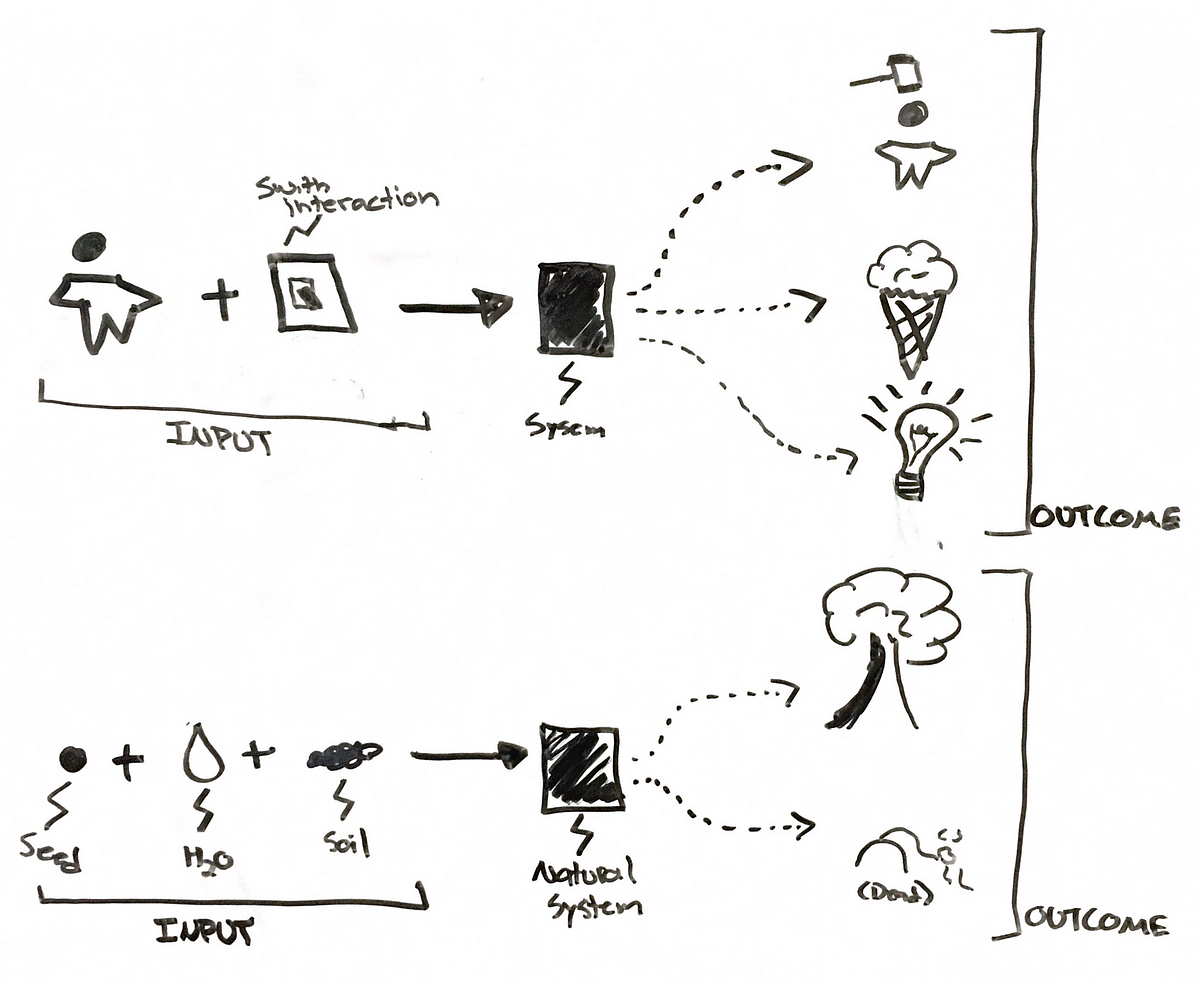 Swith
interaction
INPUT
Sysem
OUTCOME
Seed
H₂O
Soil
Natural
System
(Dead)
INPUT
OUTCOME